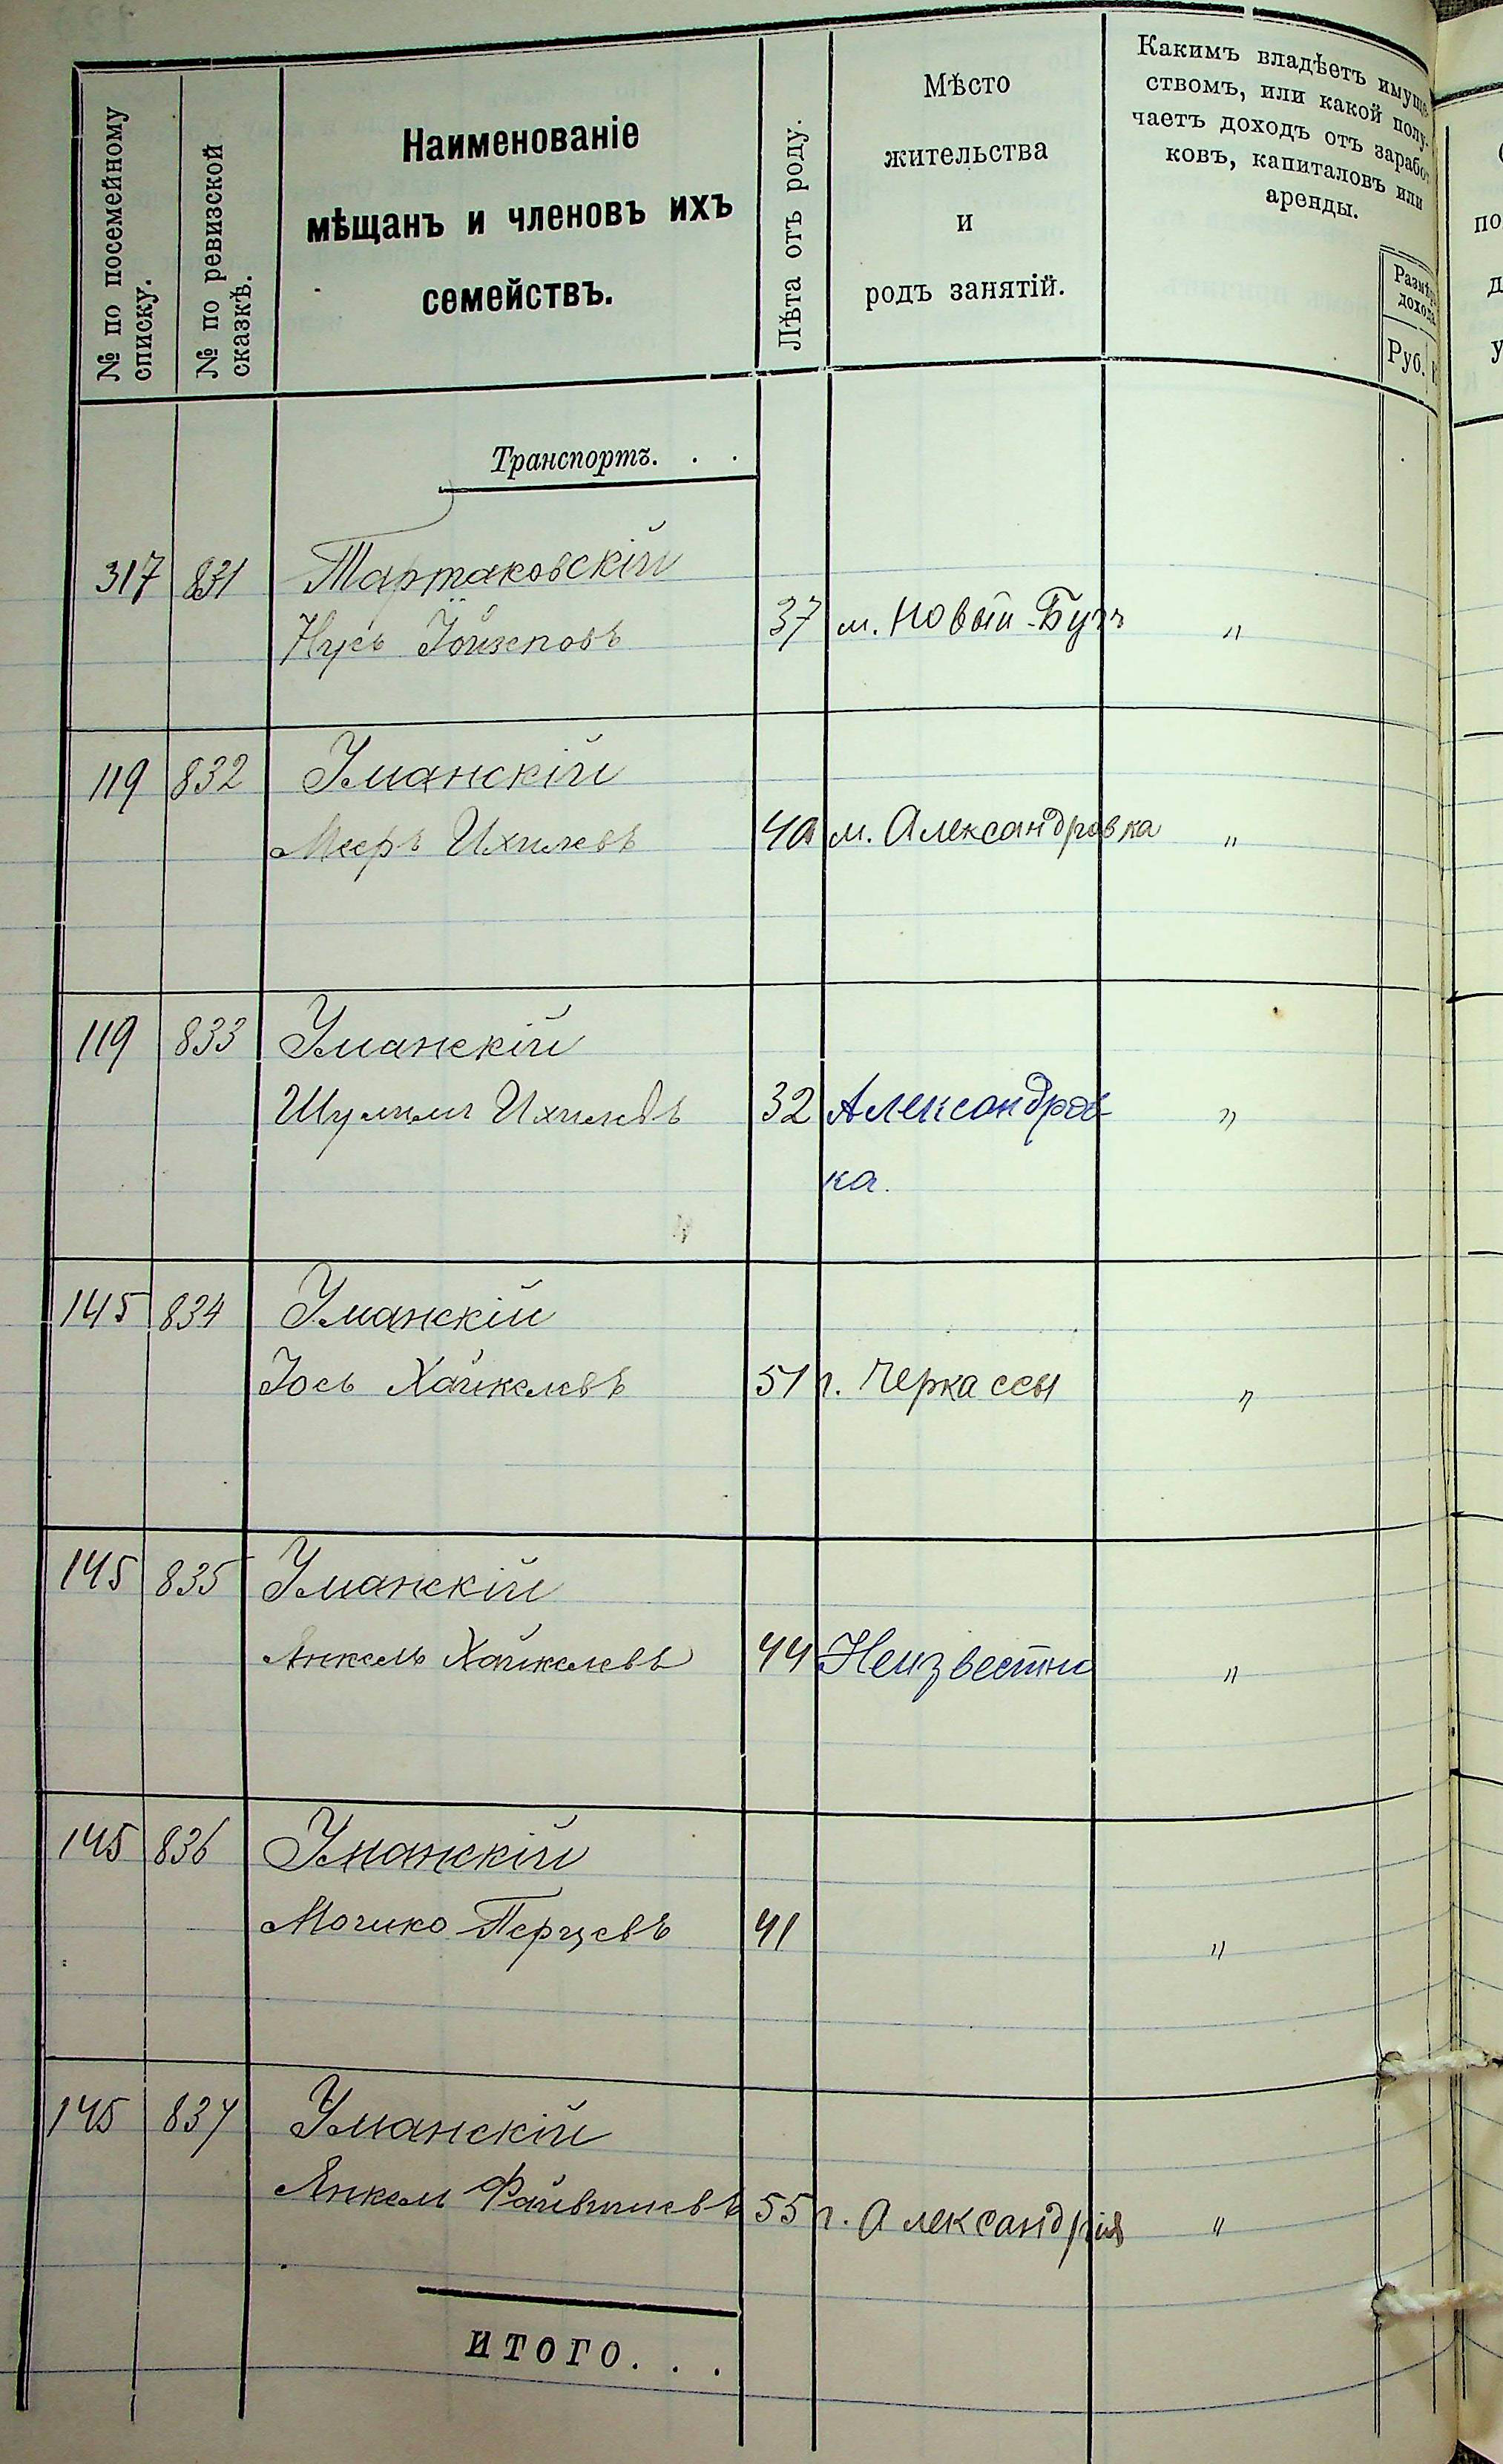 № по посемейному
списку.
№ по ревизской
сказкѣ.
Наименованіе
мѣщанъ и членовъ ихъ
семействъ.
Лѣта отъ роду.
Мѣсто
жительства
и
родъ занятій.
Какимъ владѣетъ имуще
ствомъ, или какой полу-
чаетъ доходъ отъ зарабо
ковъ, капиталовъ или
аренды.
Размѣръ
дохода
Руб.
Транспортъ. . .
317 831 Тартаковскій
Нусь Іойзеповъ 37 м. Новый-Бугъ "
119 832 Уманскій
Мееръ Ихилевъ 40 м. Александровка "
119 833 Уманскій
Шулим Ихилевъ 32 Александров-
ка. "
145 834 Уманскій
Іось Хайкелевъ 51 г. Черкассы "
145 835 Уманскій
Янкель Хайкелевъ 44 Неизвестно "
145 836 Уманскій
Мошко Перцевъ 41 "
145 837 Уманскій
Янкель Файвишевъ 55 г. Александрія "
ИТОГО. . .